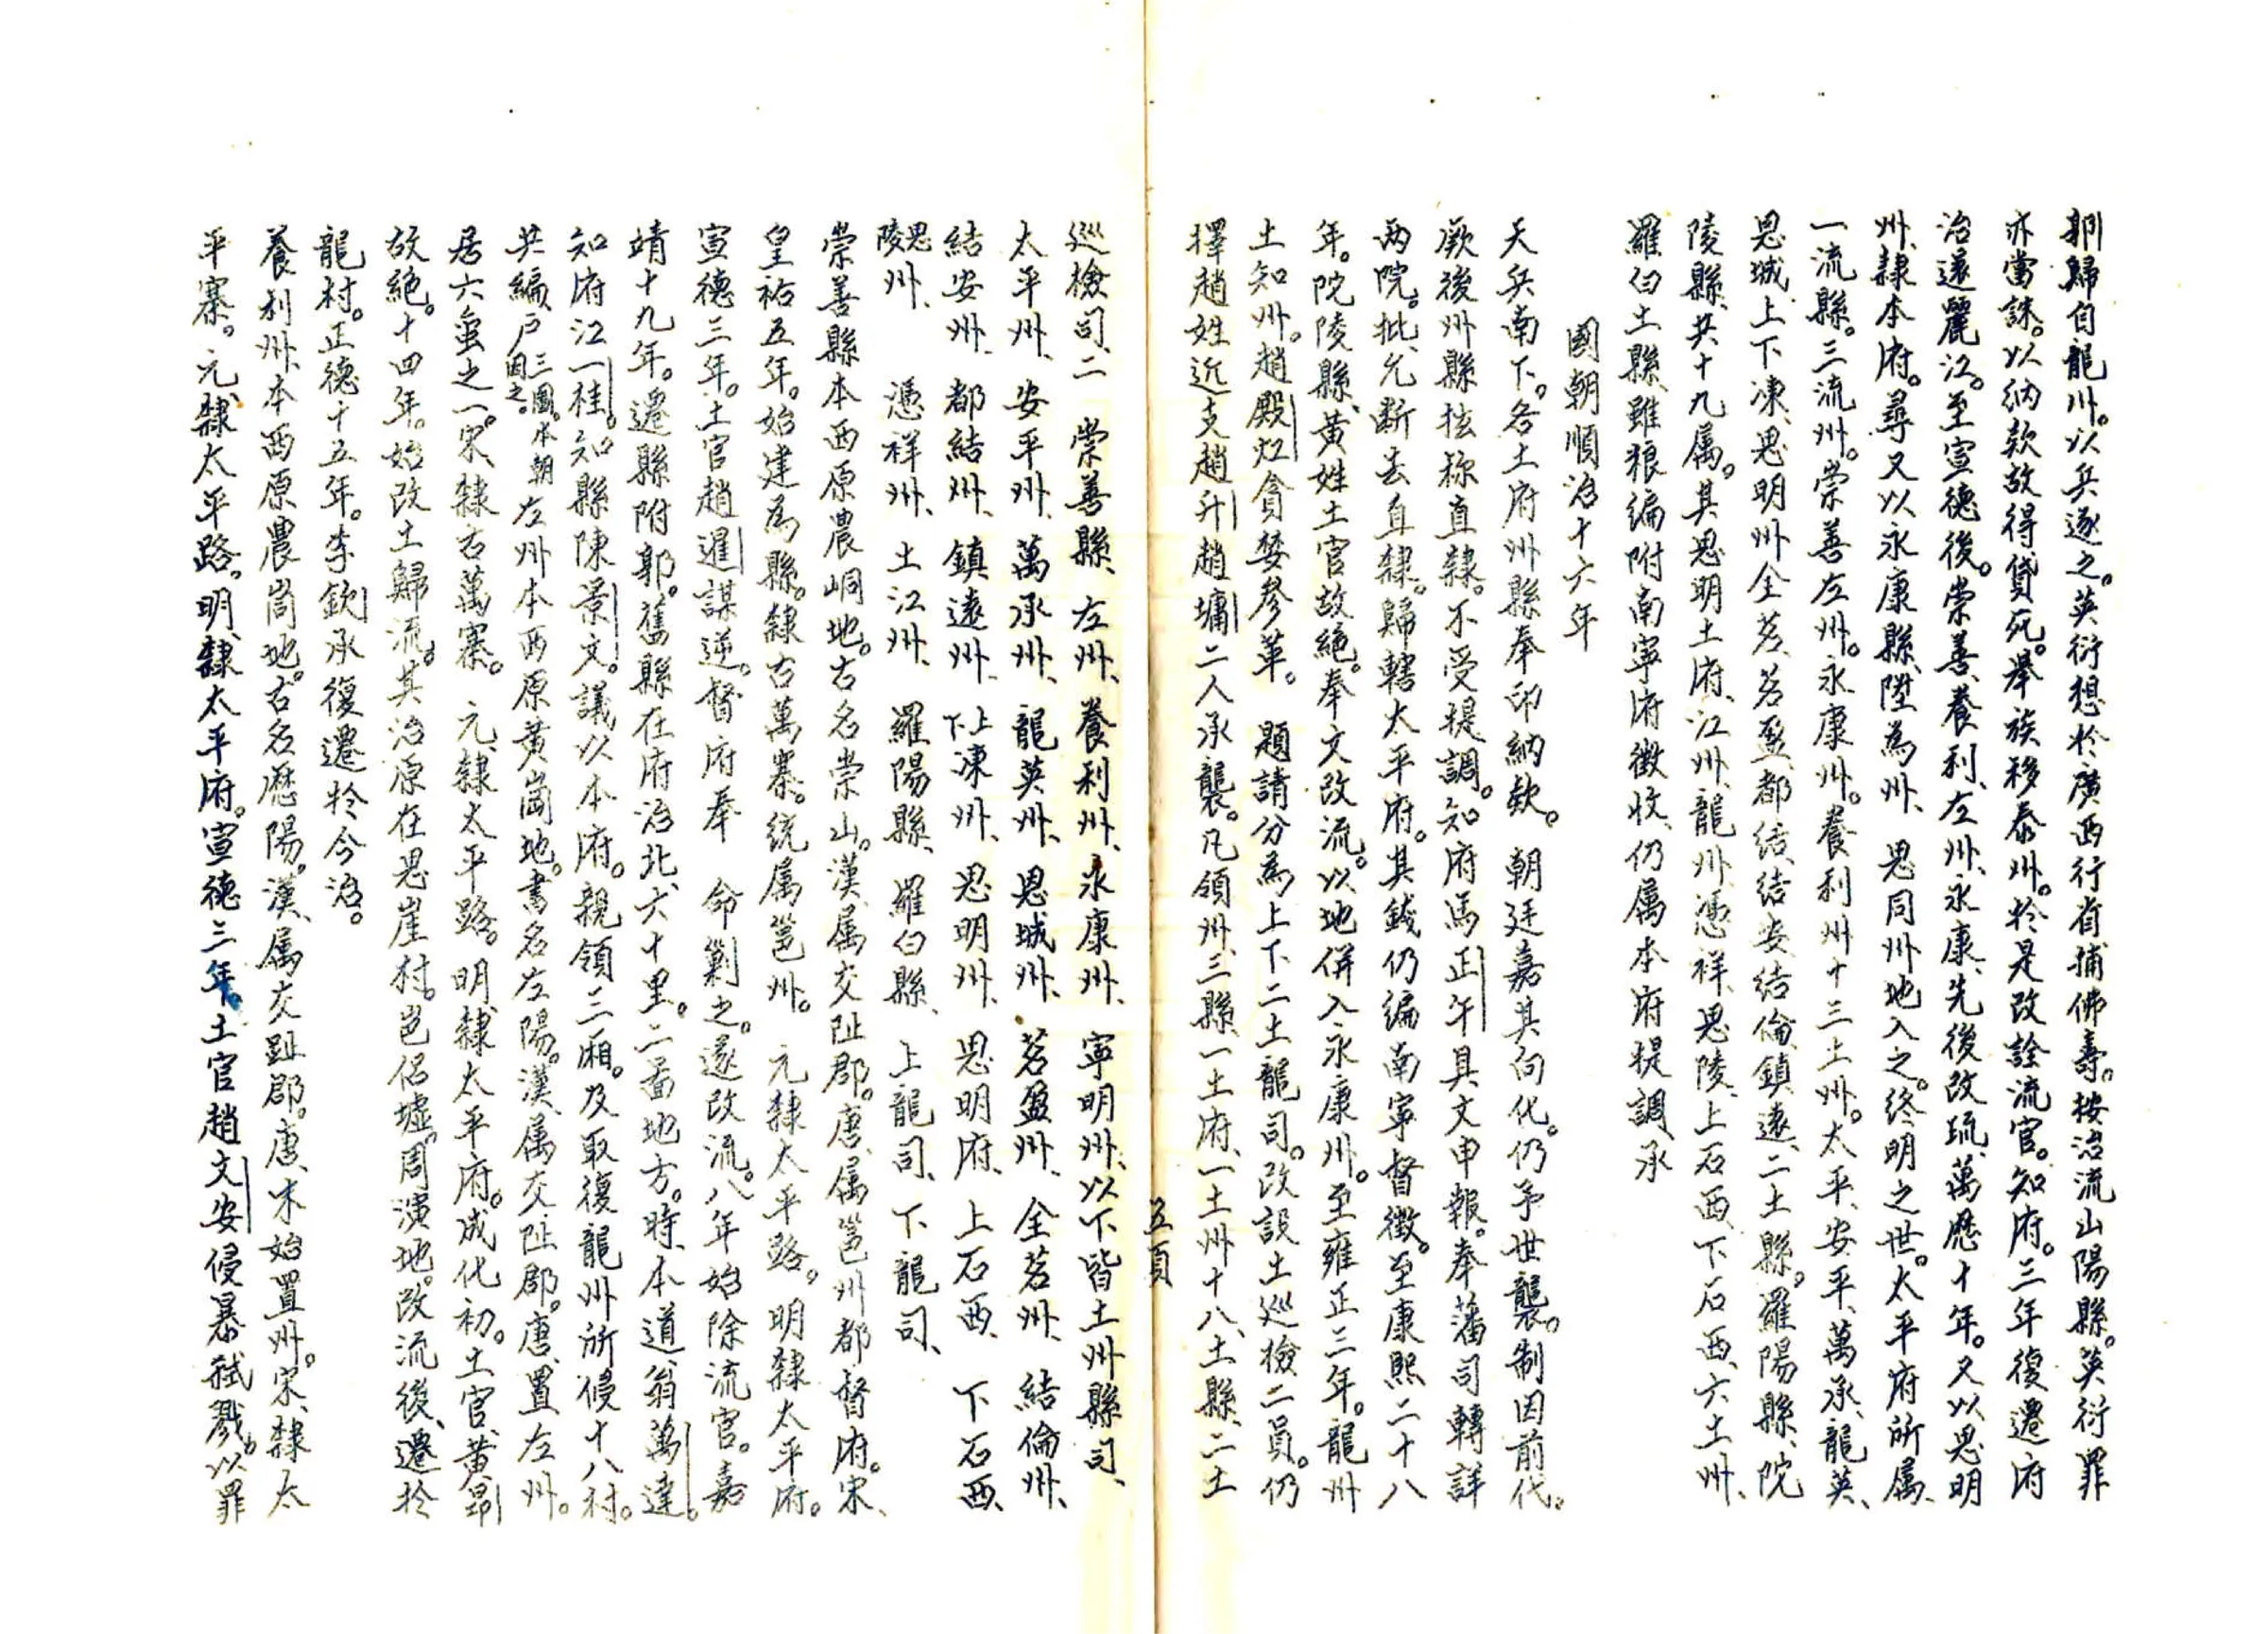 朝歸自龍川。以兵逐之。英衍想於廣西行省捕佛壽。按治流山陽縣。英衍罪
亦當誅。以納欵故得貸死。舉族移泰州。於是改詮流官。知府。三年復遷府
治還麗江。至宣德後。崇善、養利、左州、永康、先後改琉、萬歷十年。又以思明
州、隸本府。尋又以永康縣、陞為州、思同州地入之。終明之世。太平府所属、
一流縣。三流州。崇善左州。永康州。養利州十三土州。太平、安平、萬承、龍英、
恩城上下凍、思明州全茗、茗盈、都結、結安結倫、鎮遠、二土縣。羅陽縣、院
陵縣、共十九属。其思明土府、江州、龍州、憑祥、思陵、上石西、下石西、六土州、
羅白土縣、雖狼編附南寧府徴收、仍属本府提調、承
國朝順治十六年
天兵南下。各土府州縣奉印納欵。朝廷嘉其向化。仍予世襲。制因前代。
厥後州縣抆稱直隸。不受提調。知府馬正午具文申報。奉藩司轉詳
两院。批允断去直隸。歸轄太平府。其錢仍編南寧督徴。至康熙二十八
年。院陵縣、黄姓土官故絕。奉文改流。以地併入永康州。至雍正三年。龍州
土知州。趙殿灴貪婪參革。題請分為上下二土龍司。改設土巡檢二員。仍
擇趙姓近支趙升趙墉二人承襲。凡領州、三縣、一土府、一土州十八、土縣、二土
五頁
巡檢司、二 崇善縣、左州、養利州、永康州、寧明州、以下皆土州縣司、
太平州、安平州、萬承州、龍英州、恩城州、茗盈州、全茗州、結倫州、
結安州、都結州、鎮遠州、上下凍州、思明州、思明府、上石西、下石西、
思陵州、憑祥州、土江州、羅陽縣、羅白縣、上龍司、下龍司、
崇善縣本西原農峒地。古名崇山。漢、属交阯郡。唐、属邕州都督府。宋、
皇祐五年。始建為縣。隸古萬寨。統属邕州。元隸太平路。明隸太平府。
宣德三年。土官趙暹謀逆。督府奉 命剿之。遂改流。八年始除流官。嘉
靖十九年。遷縣附郭。舊縣在府治北六十里。二啚地方。時、本道翁萬達。
知府江一桂。知縣陳景文。議以本府。親領三廂。及取復龍州所侵十八村。
共編户三圖。本朝因之。左州本西原黄峝地。書名左陽。漢、属交阯郡。唐、置左州。
居六蛮之一。宋、隸古萬寨。元、隸太平路。明、隸太平府。成化初。土官黄昂
故絕。十四年。始改土歸流。其治原在思崖村。邑侶墟。周濆地。改流後、遷於
龍村。正德十五年。李欽承復遷於今治。
養利州、本西原農峝地。古名歷陽。漢、属交趾郡。唐、木始置州。宋、隸太
平寨。元、隸太平路。明、隸太平府。宣德三年。土官趙文安侵暴弒戮。以罪